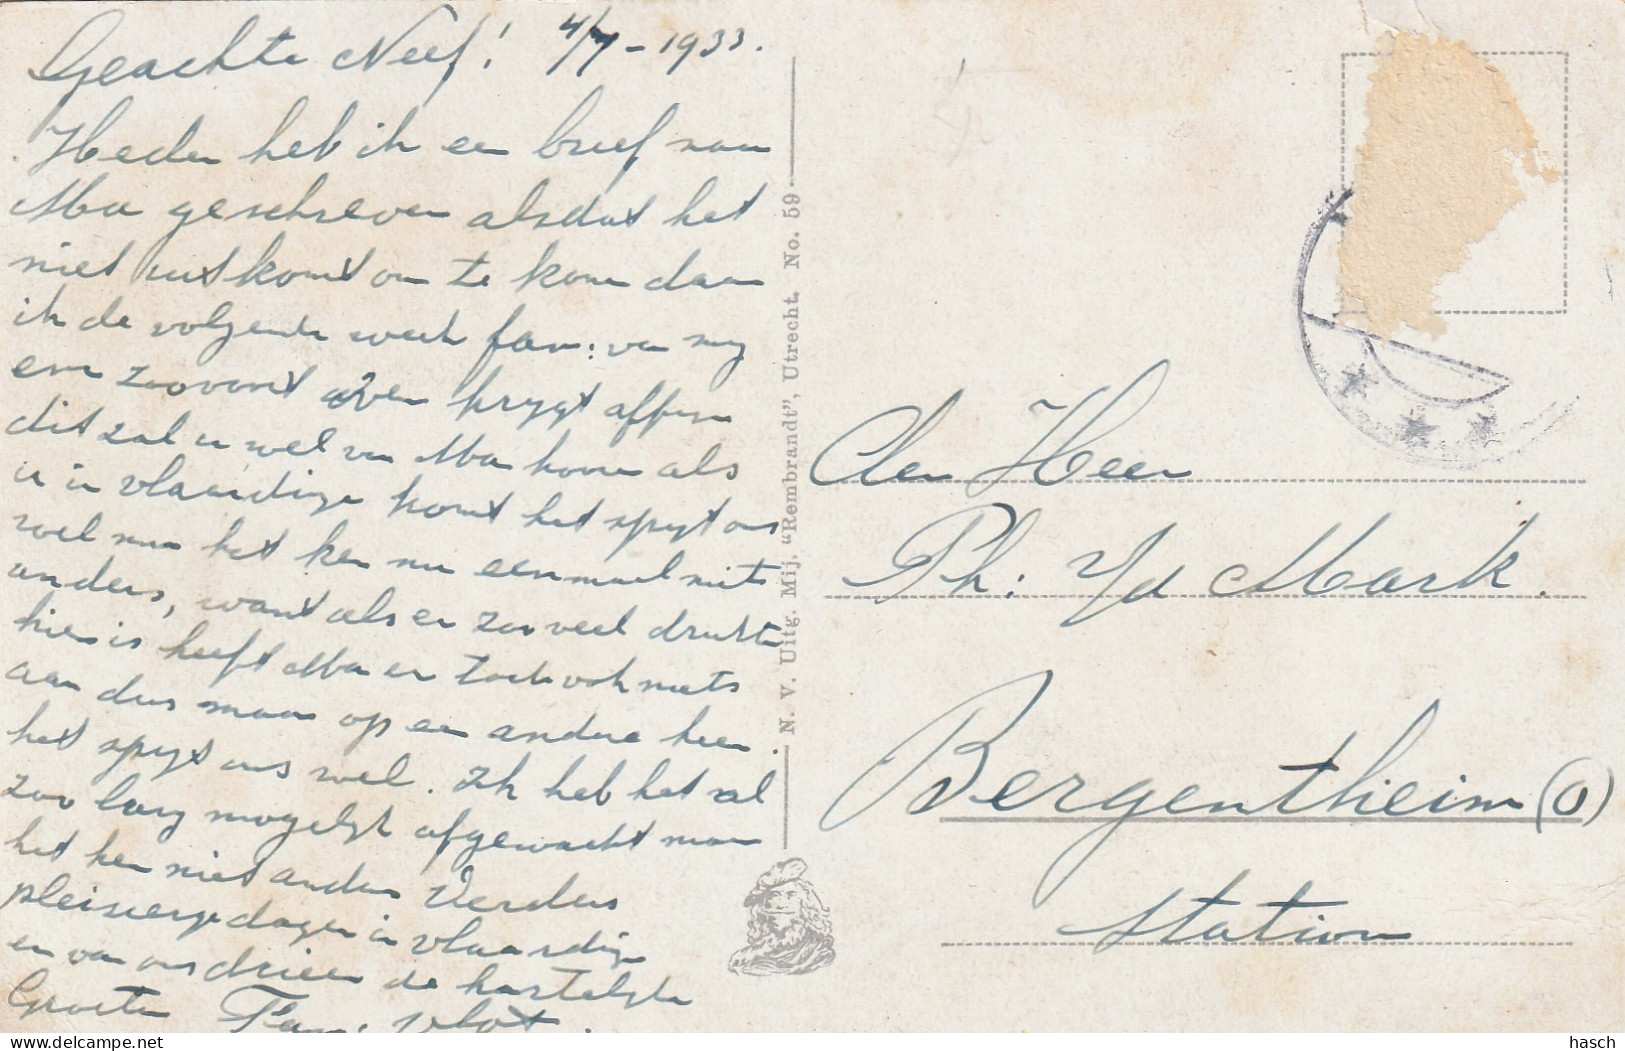 Geachte Neef! 4/7-1933.
Heden heb ik een brief naar
Moe geschreven alsdat het
niet uitkomt om te kome daar
ik de volgende week fam: van mij
em zoovoort over krijgt affijn
dit zal u wel van Moe hooren als
u in vlaardinge komt het spijt ons
wel maar het ken nu eenmaal niets
anders, want als er zooveel drukte
hier is heeft Moe er toch ook niets
aan dus maar op een andere keer.
het spijt ons wel. Ik heb het al
zoo lang mogelijk afgewacht maar
het ken niet anders Verders
pleisierige dagen in vlaardinge
en van ons drieen de hartelijke
Groeten Fam: Vlot.
N. V. Uitg. Mij. "Rembrandt", Utrecht. No. 59
Den Heer
Ph: Yd Mark.
Bergentheim (O)
Station
hasch
delcampe.net